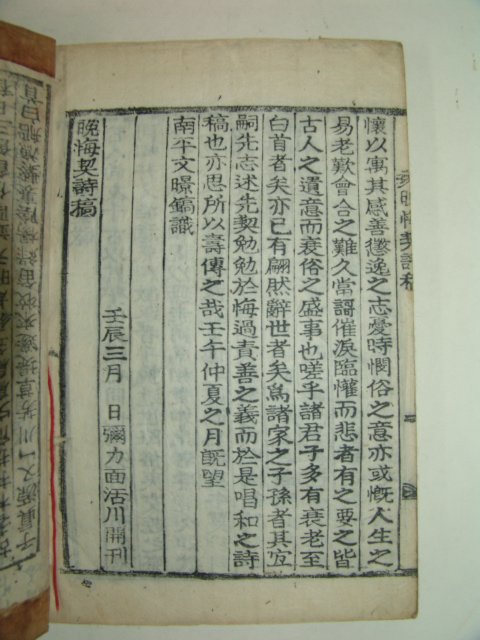 懷以寓其感善懲逸之志憂時憫俗之意亦或慨人生之
易老歎會合之難久當謌催淚臨懽而悲者有之要之皆
古人之遺意而衰俗之盛事也嗟乎諸君子多有衰老至
白首者矣亦已有翩然辭世者矣爲諸家之子孫者其宜
嗣先志述先契勉勉於悔過責善之義而於是唱和之詩
稿也亦思所以壽傳之哉壬午仲夏之月旣望
南平文暻鎬識
晚悔契詩稿
壬辰三月 日彌力面活川開刊